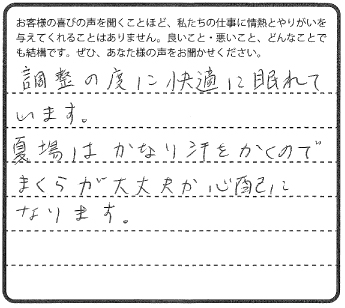 お客様の喜びの声を聞くことほど、私たちの仕事に情熱とやりがいを
与えてくれることはありません。良いこと・悪いこと、どんなことで
も結構です。ぜひ、あなた様の声をお聞かせください。
調整の度に快適に眠れて
います。
夏場はかなり汗をかくので
まくらが大丈夫か心配に
なります。